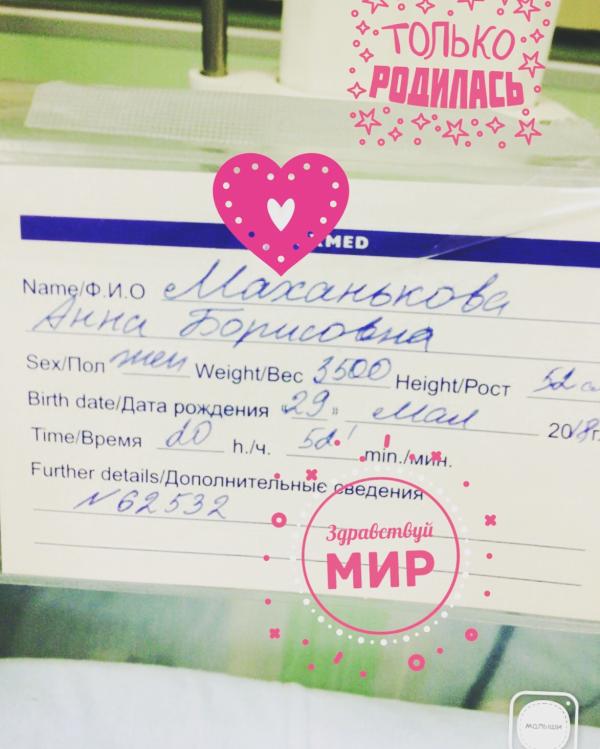 ТОЛЬКО
РОДИЛАСЬ
MED
Name/Ф.И.О Маханькова
Анна Борисовна
Sex/Пол жен Weight/Вес 3500 Height/Рост 52 см
Birth date/Дата рождения «29» Мая 2018г.
Time/Время 20 h./ч. 52' min./мин.
Further details/Дополнительные сведения
N 62532
Здравствуй
МИР
малыши